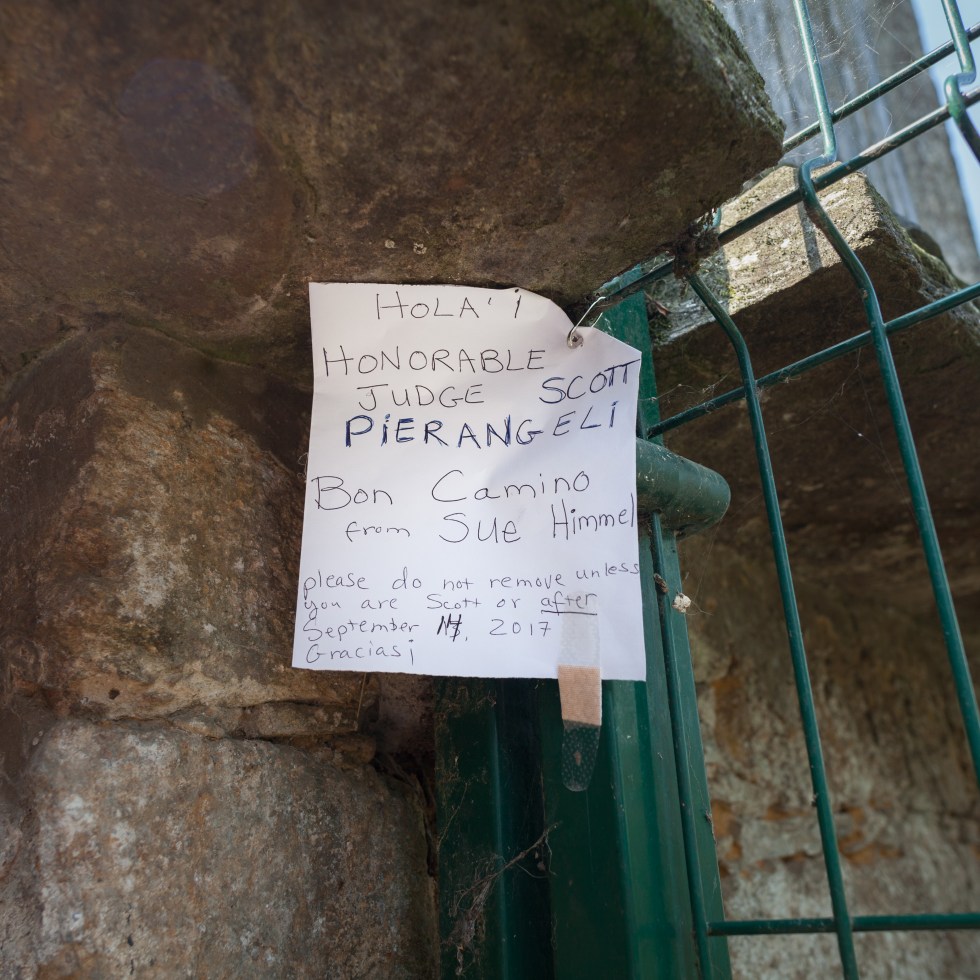 HOLA'¡
HONORABLE
JUDGE SCOTT
PiERANGELi
Bon Camino
from Sue Himmel
please do not remove unless
you are Scott or after
September , 2017
Gracias¡